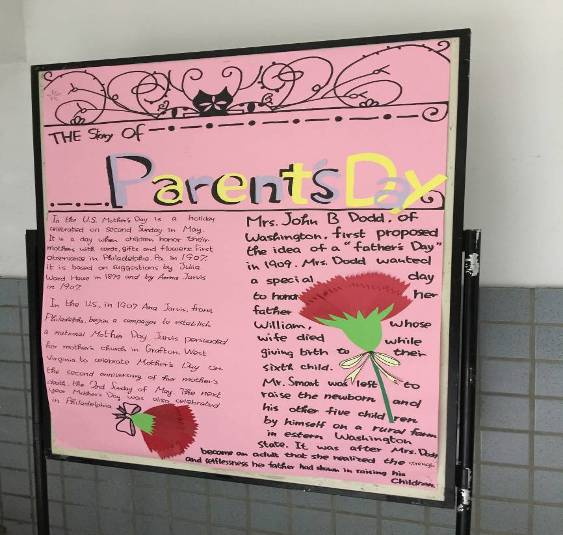 THE Story OF
Parent's Day
In the U.S. Mother's Day is a holiday
celebrated on second Sunday in May.
It is a day when children honor their
mothers with cards, gifts and flowers. First
observance in Philadelphia, Pa. in 1907.
It is based on suggestions by Julia
Ward Howe in 1872 and by Anna Jarvis
in 1907
In the U.S., in 1907 Ana Jarvis, from
Philadelphia, began a campaign to establish
a national Mother Day Jarvis persuaded
her mother's church in Grafton, West
Virginia to celebrate Mother's Day on
the second anniversary of her mother's
death, the 2nd Sunday of May. The next
year Mother's Day was also celebrated
in Philadelphia.
Mrs. John B. Dodd, of
Washington, first proposed
the idea of a "father's Day"
in 1909. Mrs. Dodd wanted
a special day
to honor her
father
William, whose
wife died while
giving birth to their
sixth child.
Mr. Smart was left to
raise the newborn and
his other five children
by himself on a rural farm
in estern Washington
State. It was after Mrs. Dodd
become an adult that she realized the strength
and selflessness her father had shown in raising his
Children